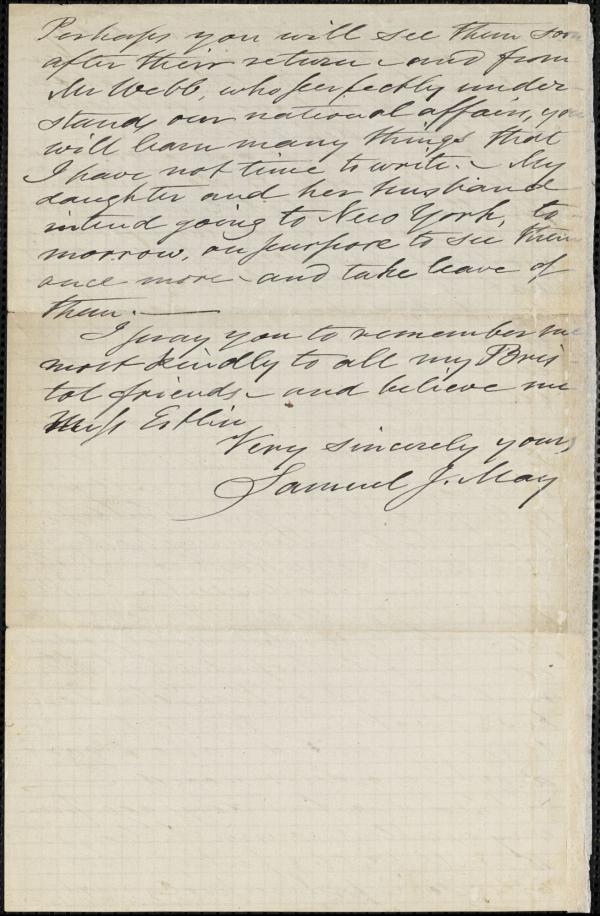 Perhaps you will see them soon
after their return - and from
Mr Webb, who perfectly under-
stands our national affairs, you
will learn many things that
I have not time to write. - My
daughter and her husband
intend going to New York, to-
morrow, on purpose to see them
once more - and take leave of
them. -
I pray you to remember me
most kindly to all my Bris
tol friends - and believe me
Miss Estlin
Very sincerely yours,
Samuel J. May